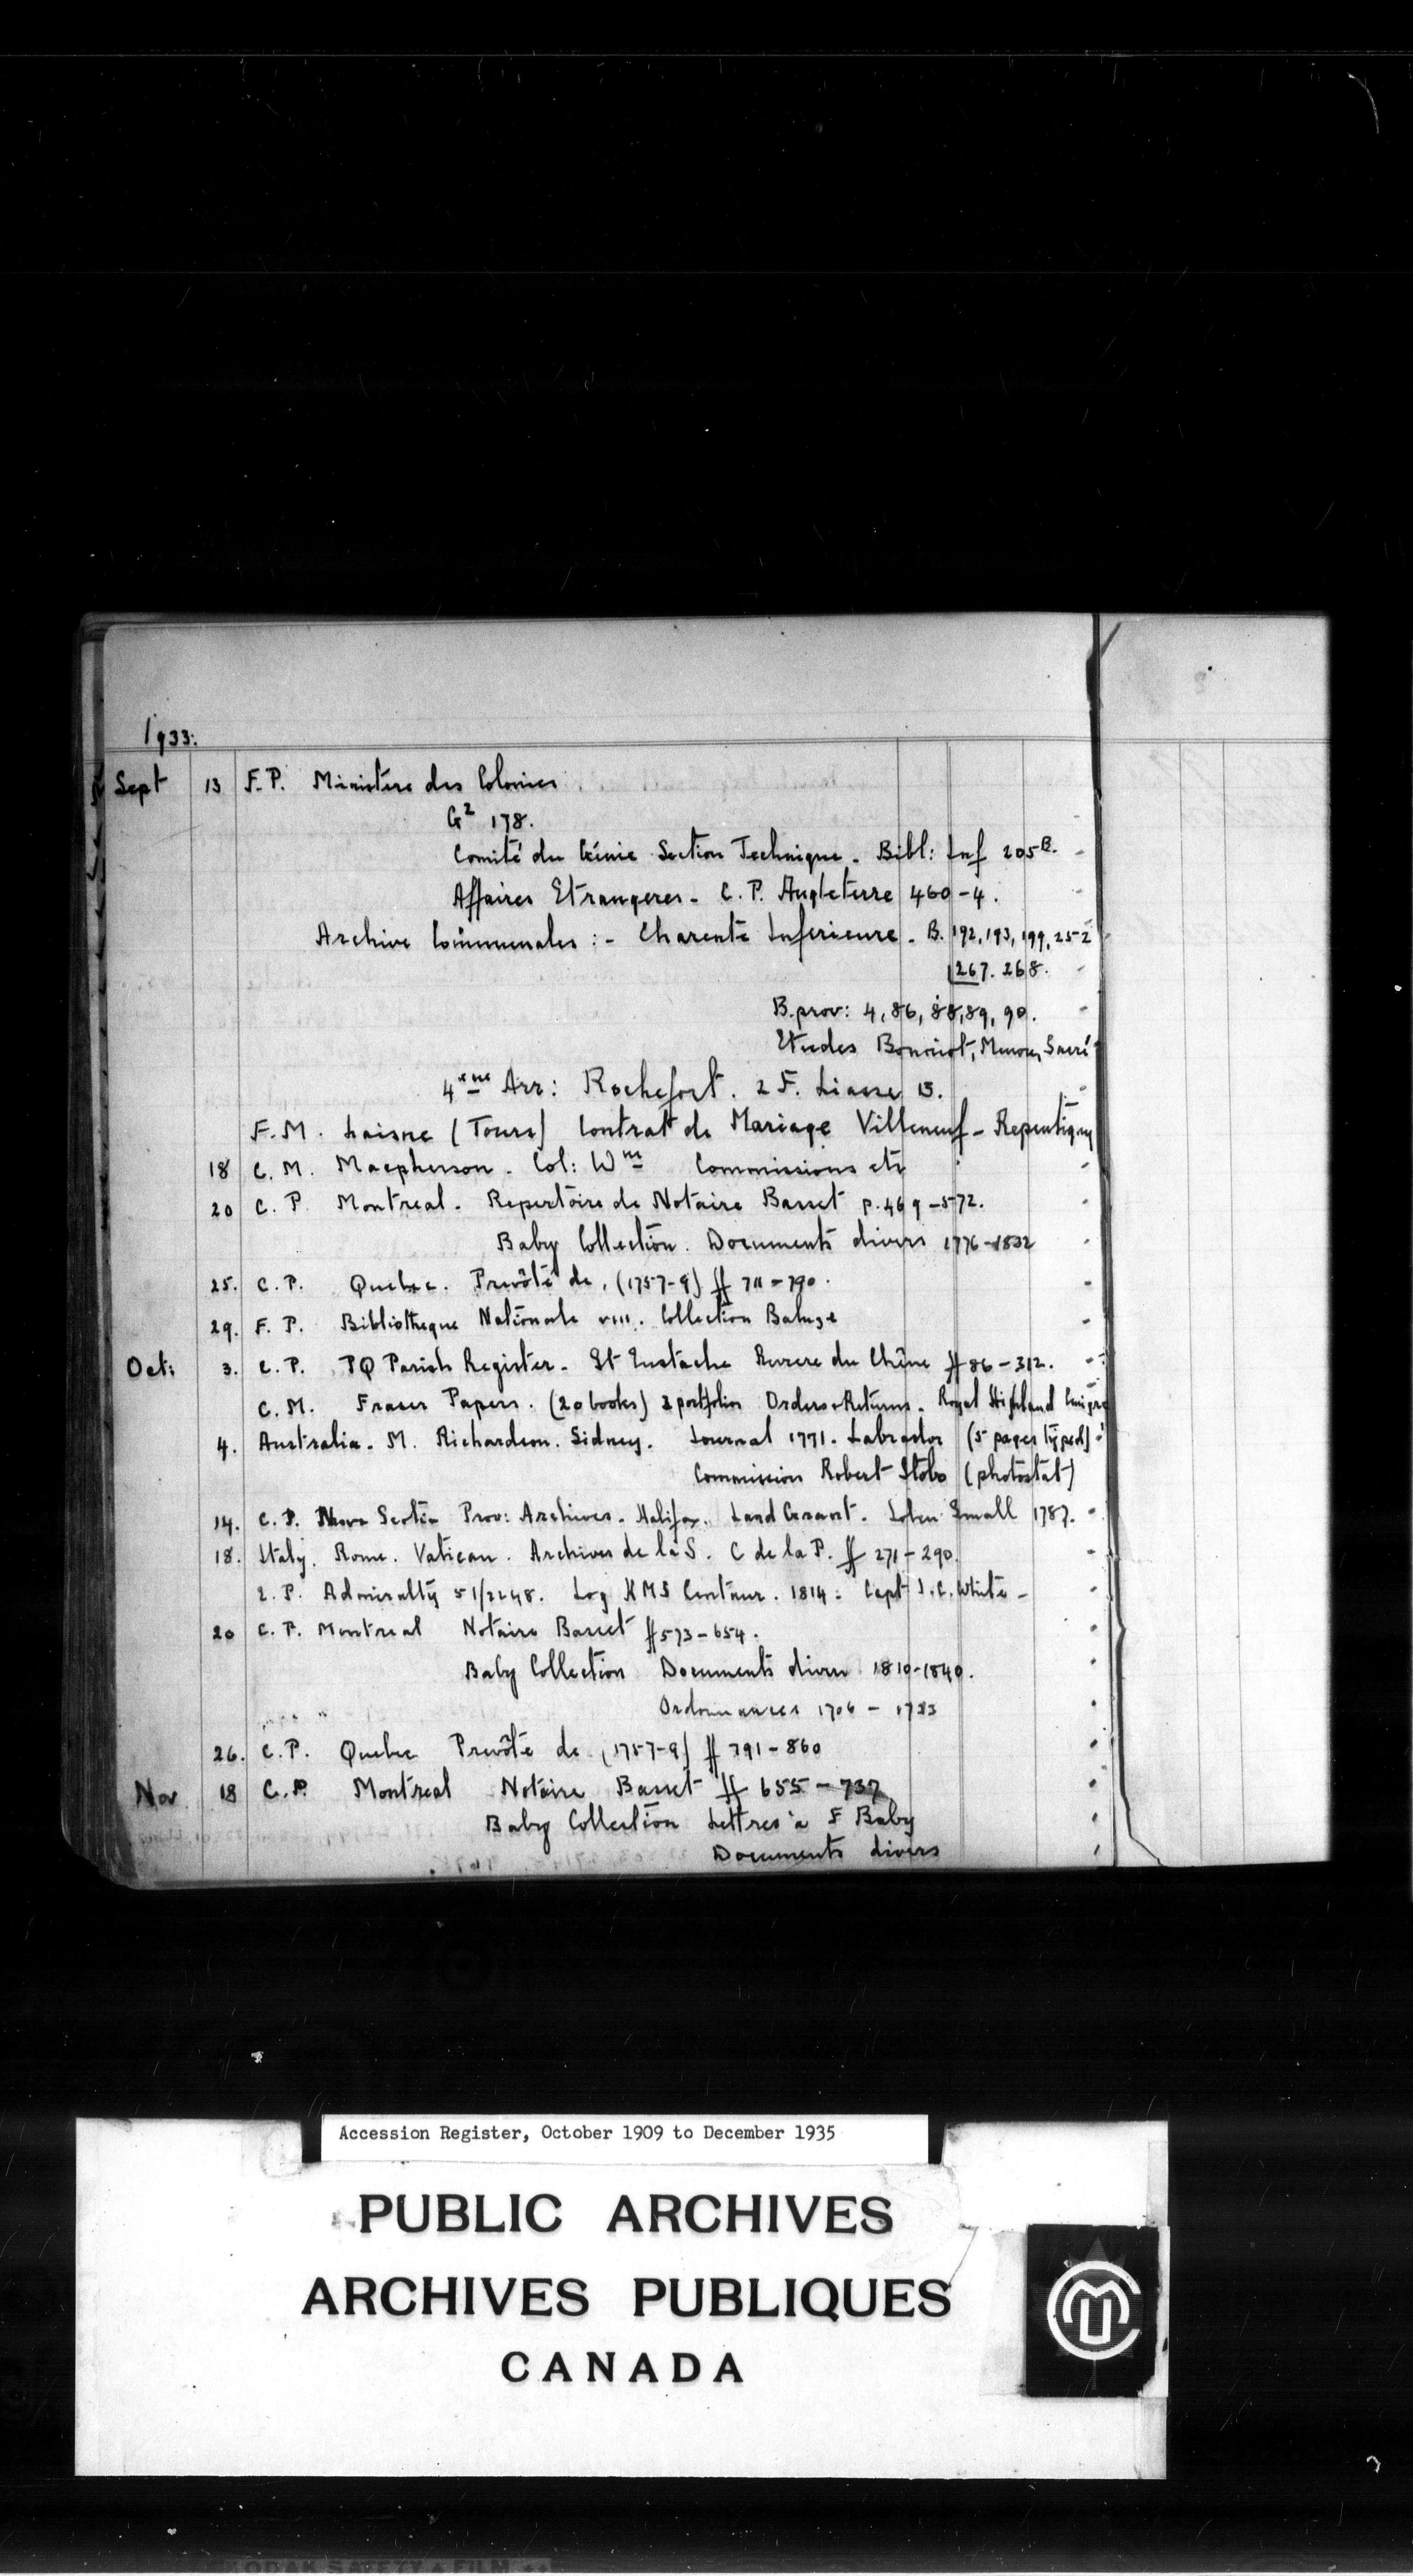 1933.
Sept 13 F.P. Ministère des Colonies
G² 178.
Comité du Génie Section Technique - Bibl: Inf 205 B. -
Affaires Etrangeres - C.P. Angleterre 460-4. -
Archive Communales :- Charente Inferieure - B. 192, 193, 199, 252
267. 268. -
B. prov: 4, 86, 88, 89, 90. -
Etudes
4eme Arr: Rochefort. 2 F. Liasse 13. -
F.M. Laisne (Tours) Contrat de Mariage Villeneuf - Repentigny
18 C.M. Macpherson - Col: Wm Commissions etc -
20 C.P. Montreal - Repertoire de Notaire Basset p. 469-572. -
Baby Collection. Documents divers 1776-1832 -
25. C.P. Quebec. Prevôté de. (1757-9) ff 711-790. -
29. F.P. Bibliotheque Nationale VIII. Collection Baluze -
Oct: 3. C.P. PQ Parish Register - St Eustache Riviere du Chêne ff 86-312. -
C.M. Fraser Papers. (20 books) 2 portfolios Orders & Returns - Royal Highland Emigra
4. Australia - M. Richardson. Sidney. Journal 1771. Labrador (5 pages typed) -
Commission Robert Stobo (photostat)
14. C.P. Nova Scotia Prov: Archives - Halifax. Land Grant. John Small 1787. -
18. Italy. Rome. Vatican. Archives de la S. C de la P. ff 271-290. -
E.P. Admiralty 51/2248. Log HMS Centaur. 1814: Capt J.C. White - -
20 C.P. Montreal Notaire Basset ff 573-654. -
Baby Collection Documents divers 1810-1840. -
" " Ordonnances 1706 - 1733 -
26. C.P. Quebec Prevôté de (1757-9) ff 791-860 -
Nov 18 C.P. Montreal Notaire Basset ff 655-737 -
Baby Collection Lettres à F Baby -
Documents divers -
Accession Register, October 1909 to December 1935
PUBLIC ARCHIVES
ARCHIVES PUBLIQUES
CANADA